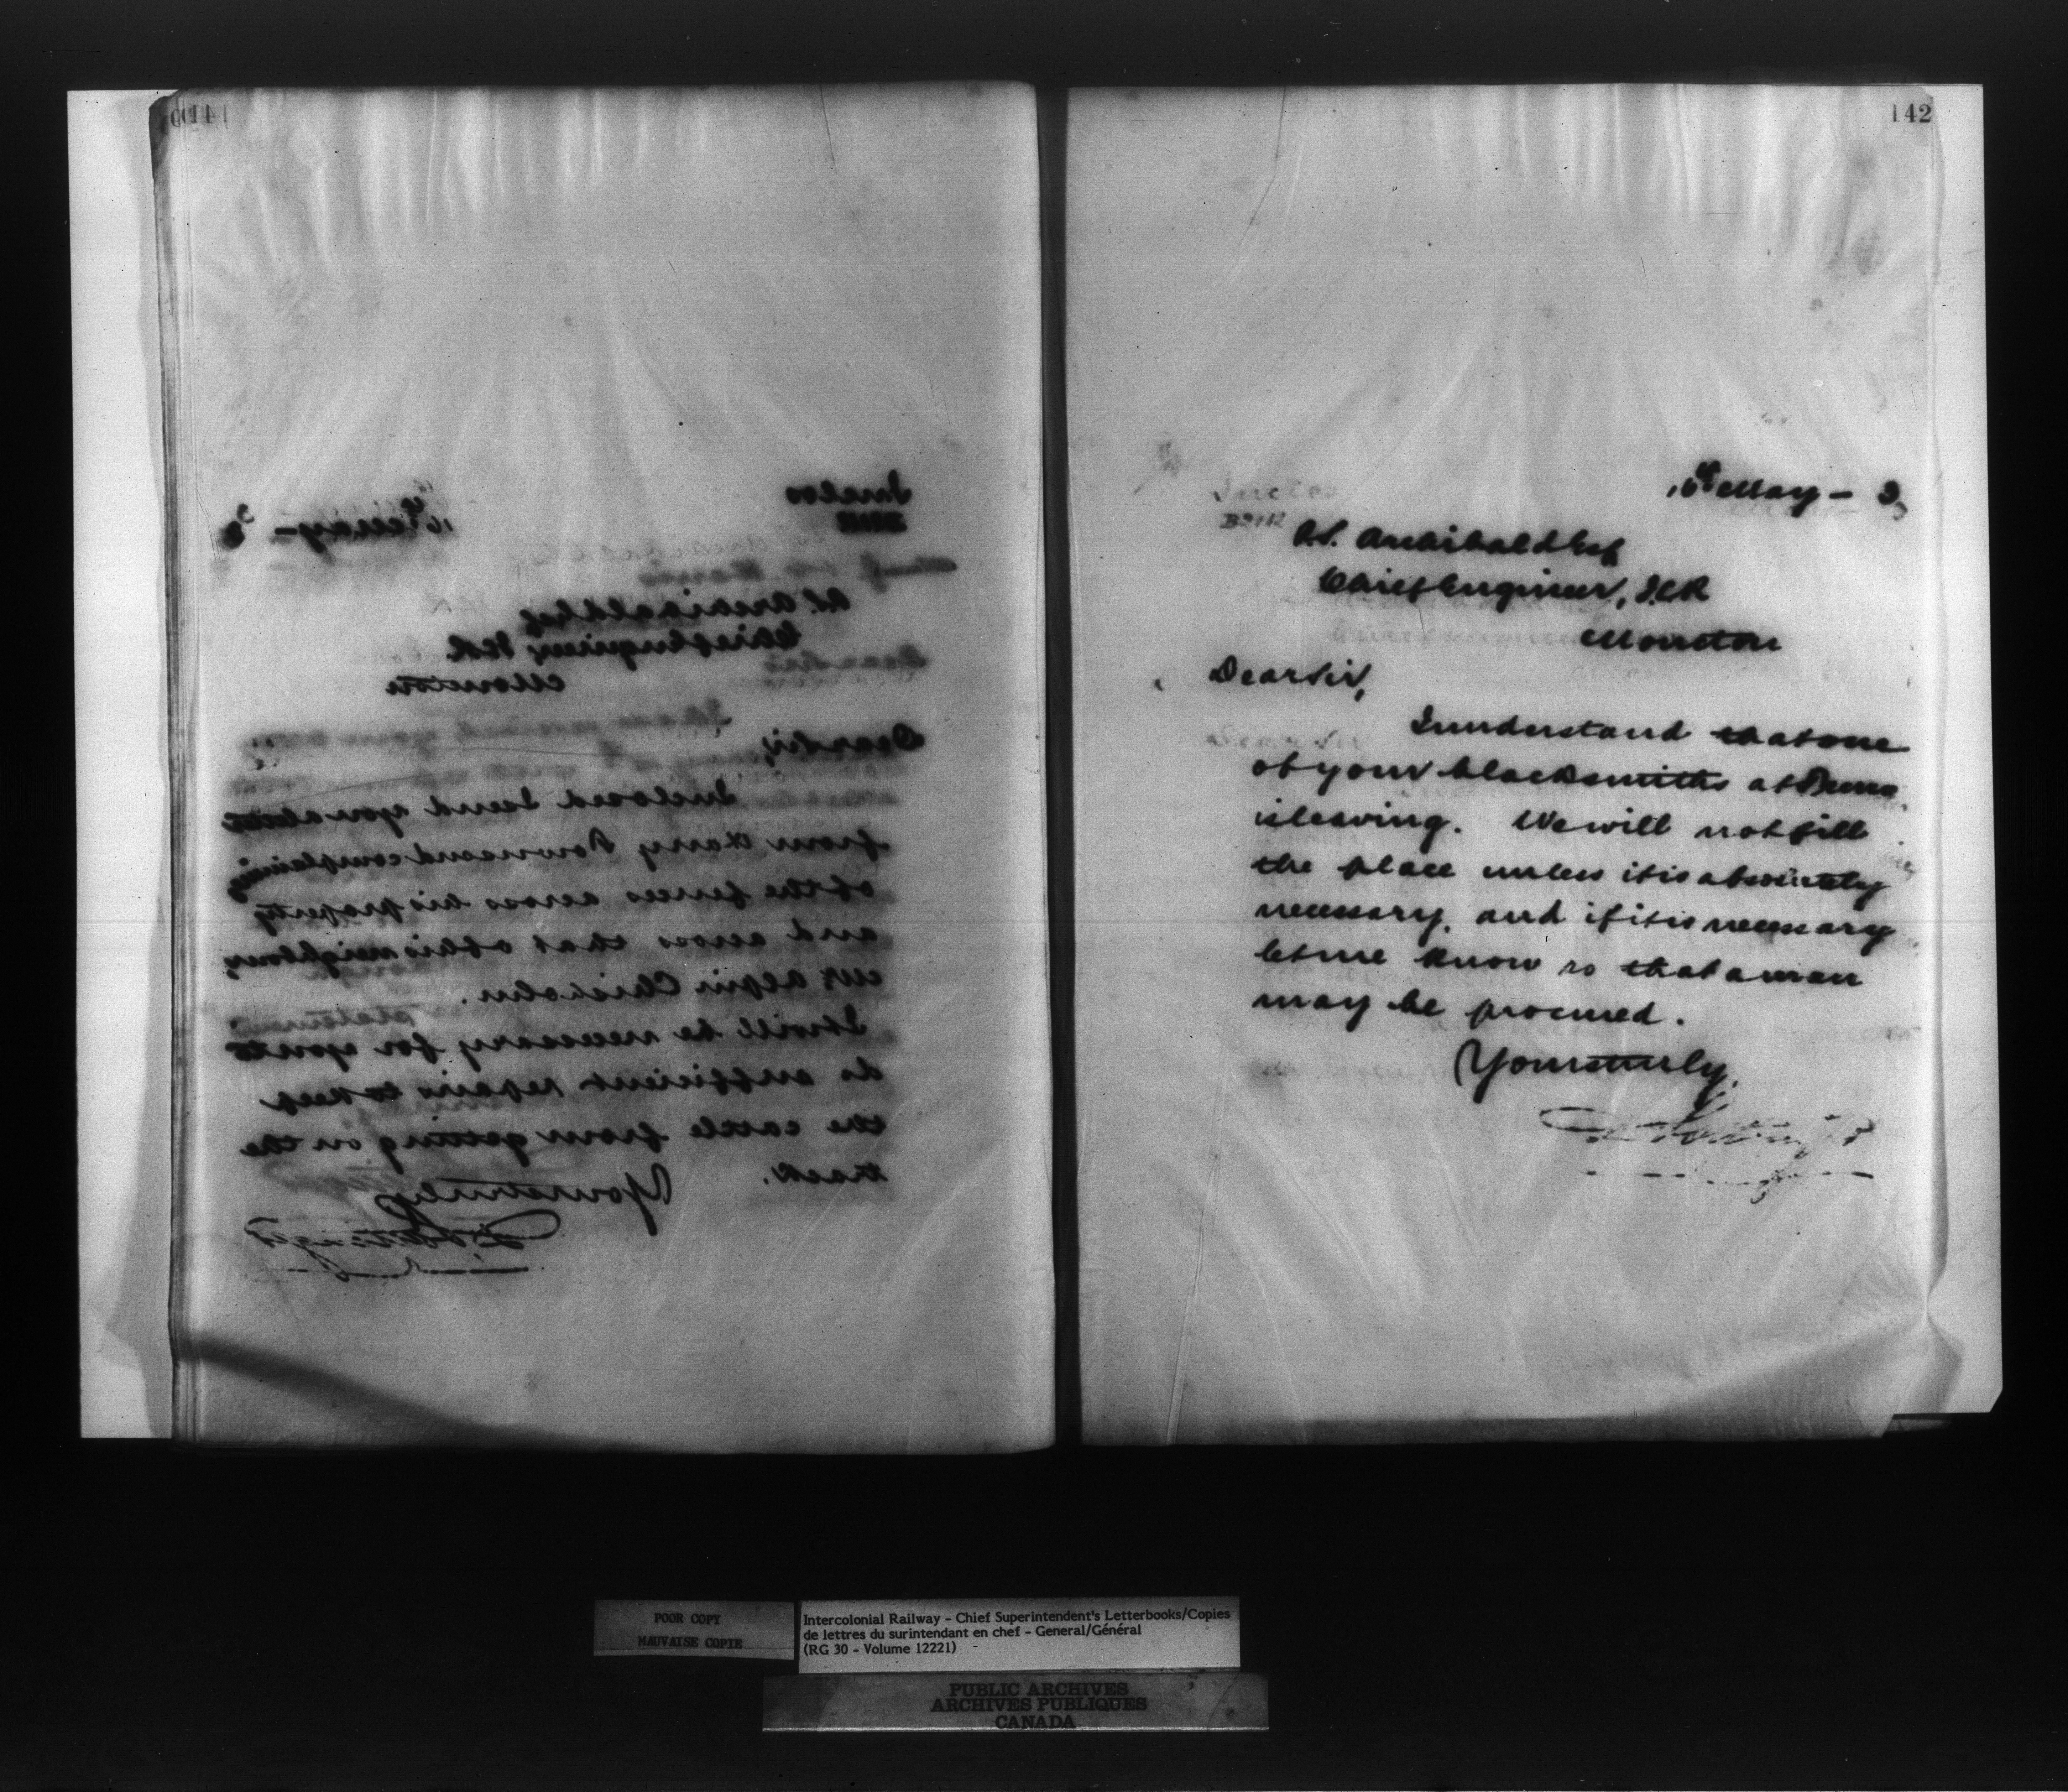 141
Inclos
16th May – 
P.S. Archibald Esq
Chief Engineer, ICR
Moncton
Dear Sir,
Inclosed I send you a letter
from Harry Townsend complaining
of the fences across his property
and across that of his neighbour,
Mr Alpin Chisholm.
It will be necessary for you to
do sufficient repairs to keep
the cattle from getting on the
track.
Yours truly
D Pottinger
142
Inclos
May –
P.S. Archibald Esq
Chief Engineer, I.C.R
Moncton
Dear Sir,
I understand that one
of your blacksmiths at
is leaving. We will not fill
the place unless it is absolutely
necessary, and if it is necessary
let me know so that a man
may be procured.
Yours truly,
D Pottinger
POOR COPY
MAUVAISE COPIE
Intercolonial Railway – Chief Superintendent's Letterbooks/Copies
de lettres du surintendant en chef – General/Général
(RG 30 – Volume 12221)
PUBLIC ARCHIVES
ARCHIVES PUBLIQUES
CANADA